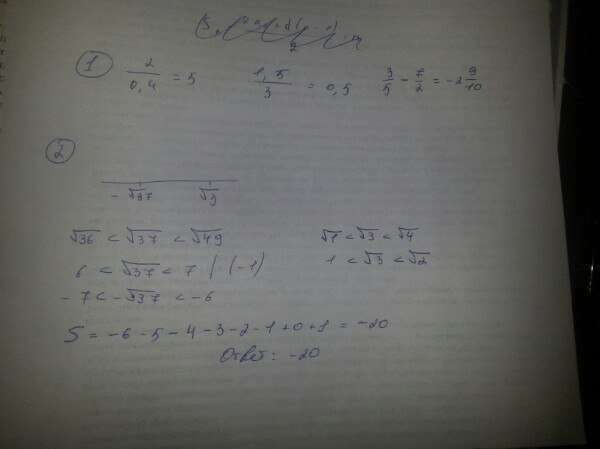 1 2/0,4 = 5 1,5/3 = 0,5 3/5 - 7/2 = -2 9/10
2
-√37 √3
√36 < √37 < √49 √1 < √3 < √4
6 < √37 < 7 | (-1) 1 < √3 < √2
-7 < -√37 < -6
S = -6-5-4-3-2-1+0+1 = -20
Ответ: -20